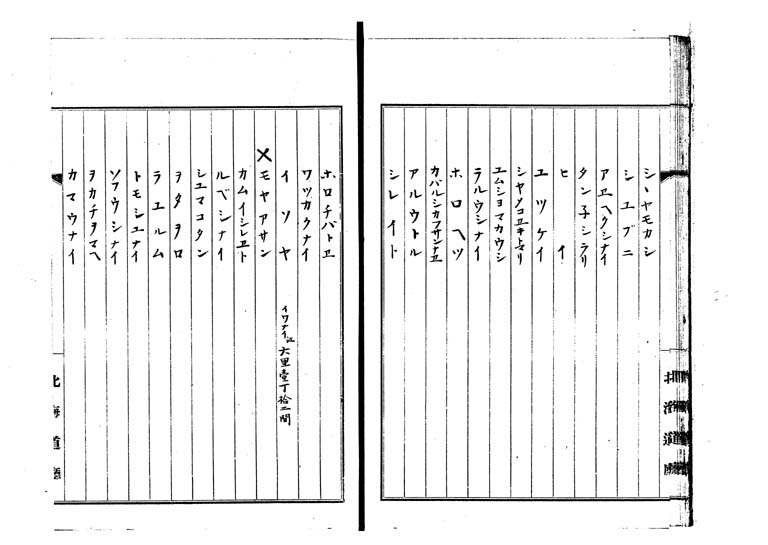 シヽヤモカシ
シユブニ
アヱヘクシナイ
タン子シラリ
ヒイ
ユツケイ
シヤメコヱキトマリ
ヱムシヨマカウシ
ラルウシナイ
ホロヘツ
カバルシカフサンナヱ
アルウトル
シレイト
北海道廳
ホロチバトヱ
ワツカクナイ
イソヤ イワナイ江 六里壹丁拾二間
×モヤアサン
カムイシレヱト
ルベシナイ
シユマコタン
ヲタヲロ
ラユルム
トモシユナイ
ソフウシナイ
ヲカチヲマヘ
カマウナイ
北海道廳